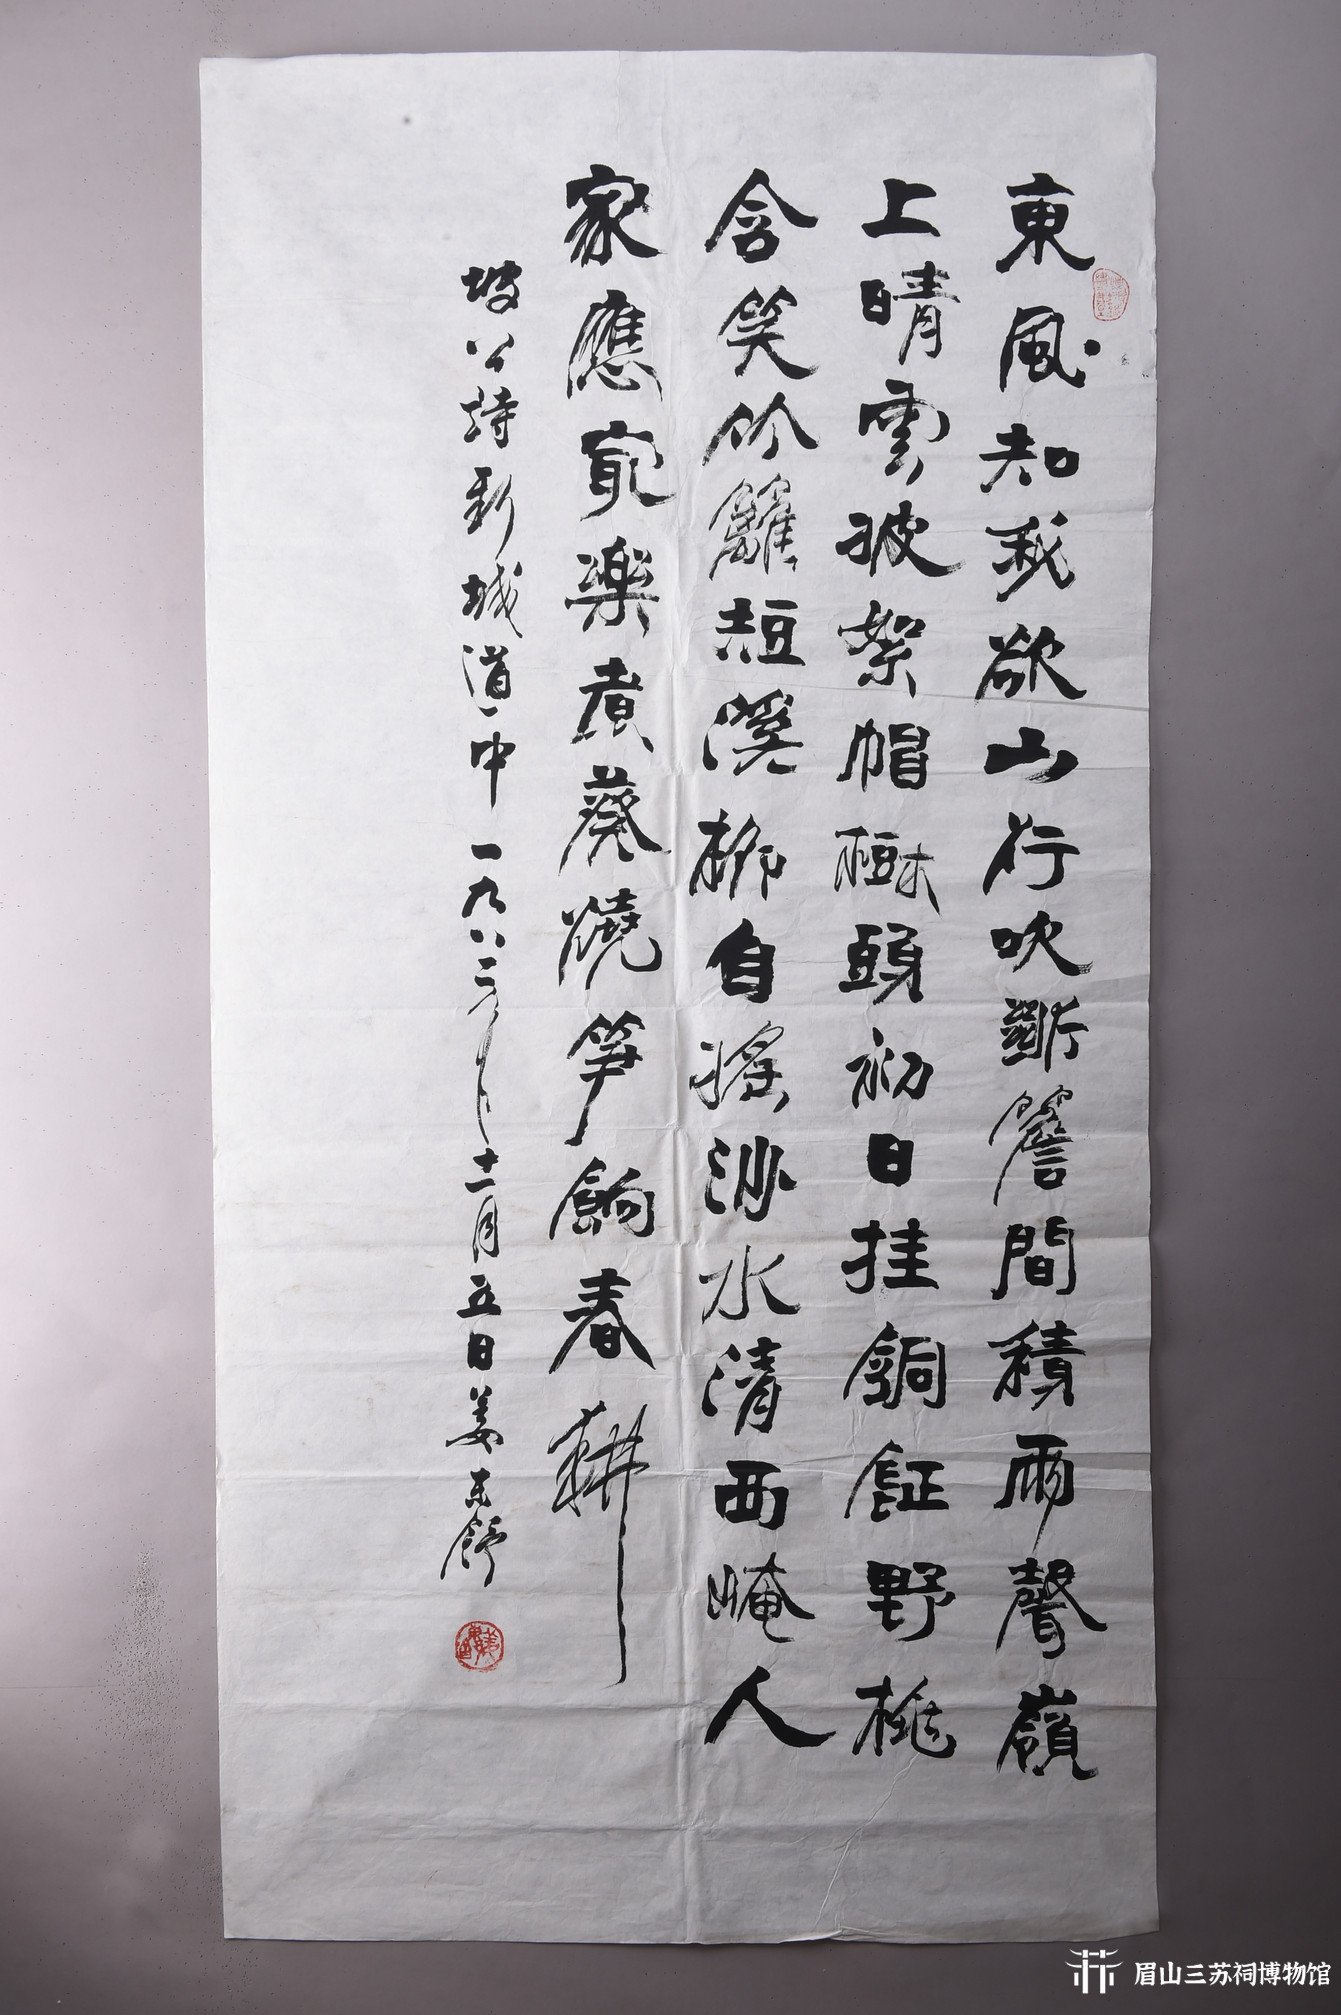 東風知我欲山行吹斷簷間積雨聲嶺
上晴雲披絮帽樹頭初日挂銅鉦野桃
含笑竹籬短溪柳自搖沙水清西崦人
家應最樂煮葵燒筍餉春耕
坡公詩新城道中一九八二年十一月五日姜东舒
眉山三苏祠博物馆